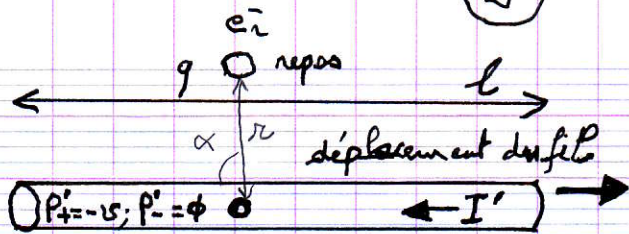 e⁻i
q repos l
α r
déplacement du fil
P'+=-v; P'-=ϕ I'